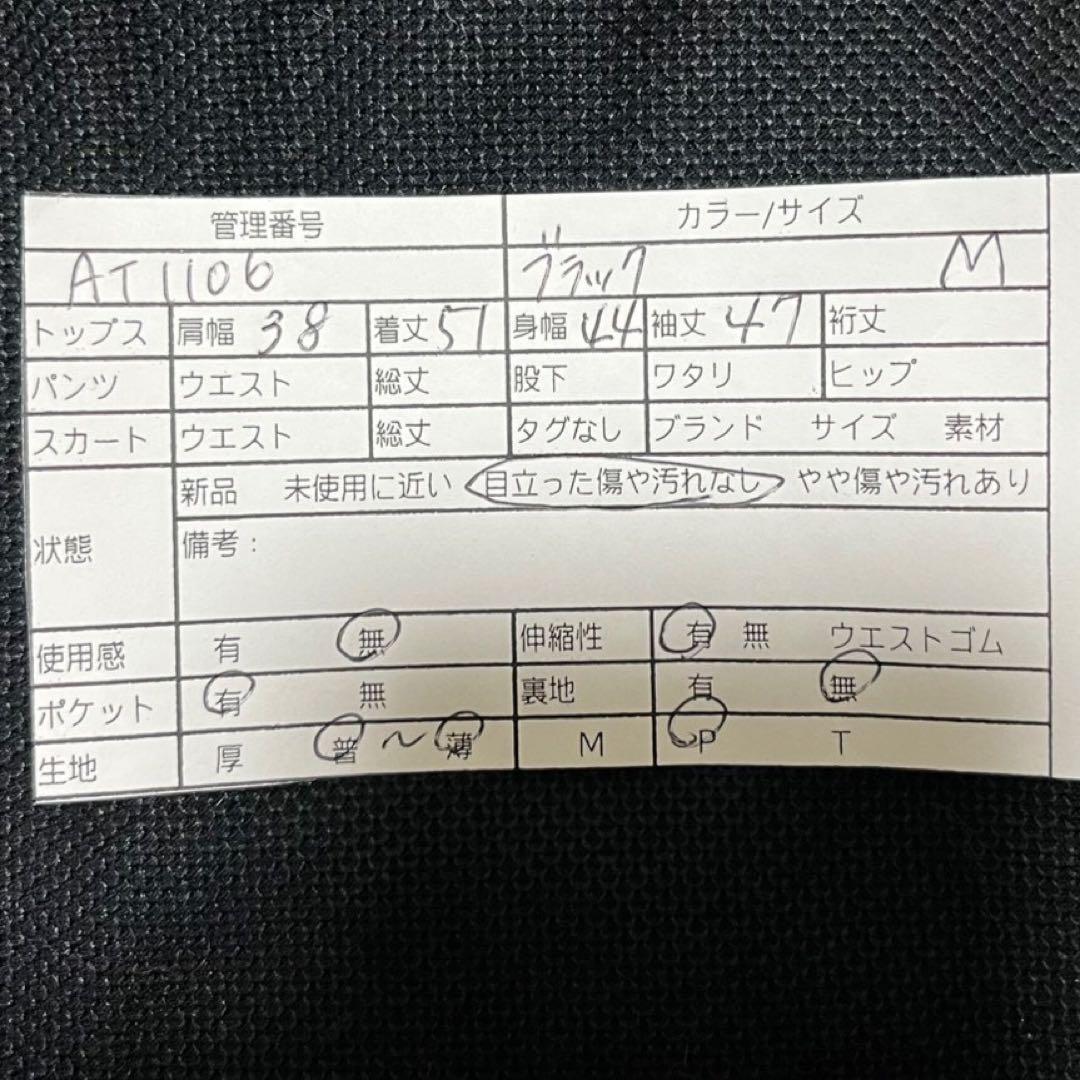 管理番号 カラー/サイズ
AT1106 ブラック M
トップス 肩幅 38 着丈 51 身幅 44 袖丈 47 裄丈
パンツ ウエスト 総丈 股下 ワタリ ヒップ
スカート ウエスト 総丈 タグなし ブランド サイズ 素材
新品 未使用に近い 目立った傷や汚れなし やや傷や汚れあり
状態 備考：
使用感 有 無 伸縮性 有 無 ウエストゴム
ポケット 有 無 裏地 有 無
生地 厚 普 〜 薄 M P T